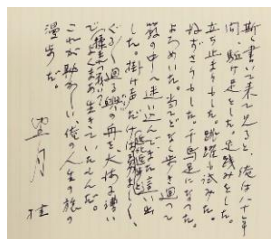 斯う書いて来て見ると、俺は八十年
間、駆け足をした。足踏みをした。
立ち止まりもした。跳躍も試みた。
ねずさりもした。千鳥足になった。
よろめいた。当てどなく歩き廻って
藪の中へ迷い込んでまた這い出
した。掛け声だけは勇ましく、
ぐるぐる廻る独楽の舟を、大海を漕い
でよくまあ生きていたもんだ。
これが恥かしい、俺の人生の旅の
漫歩だ。
望月 桂